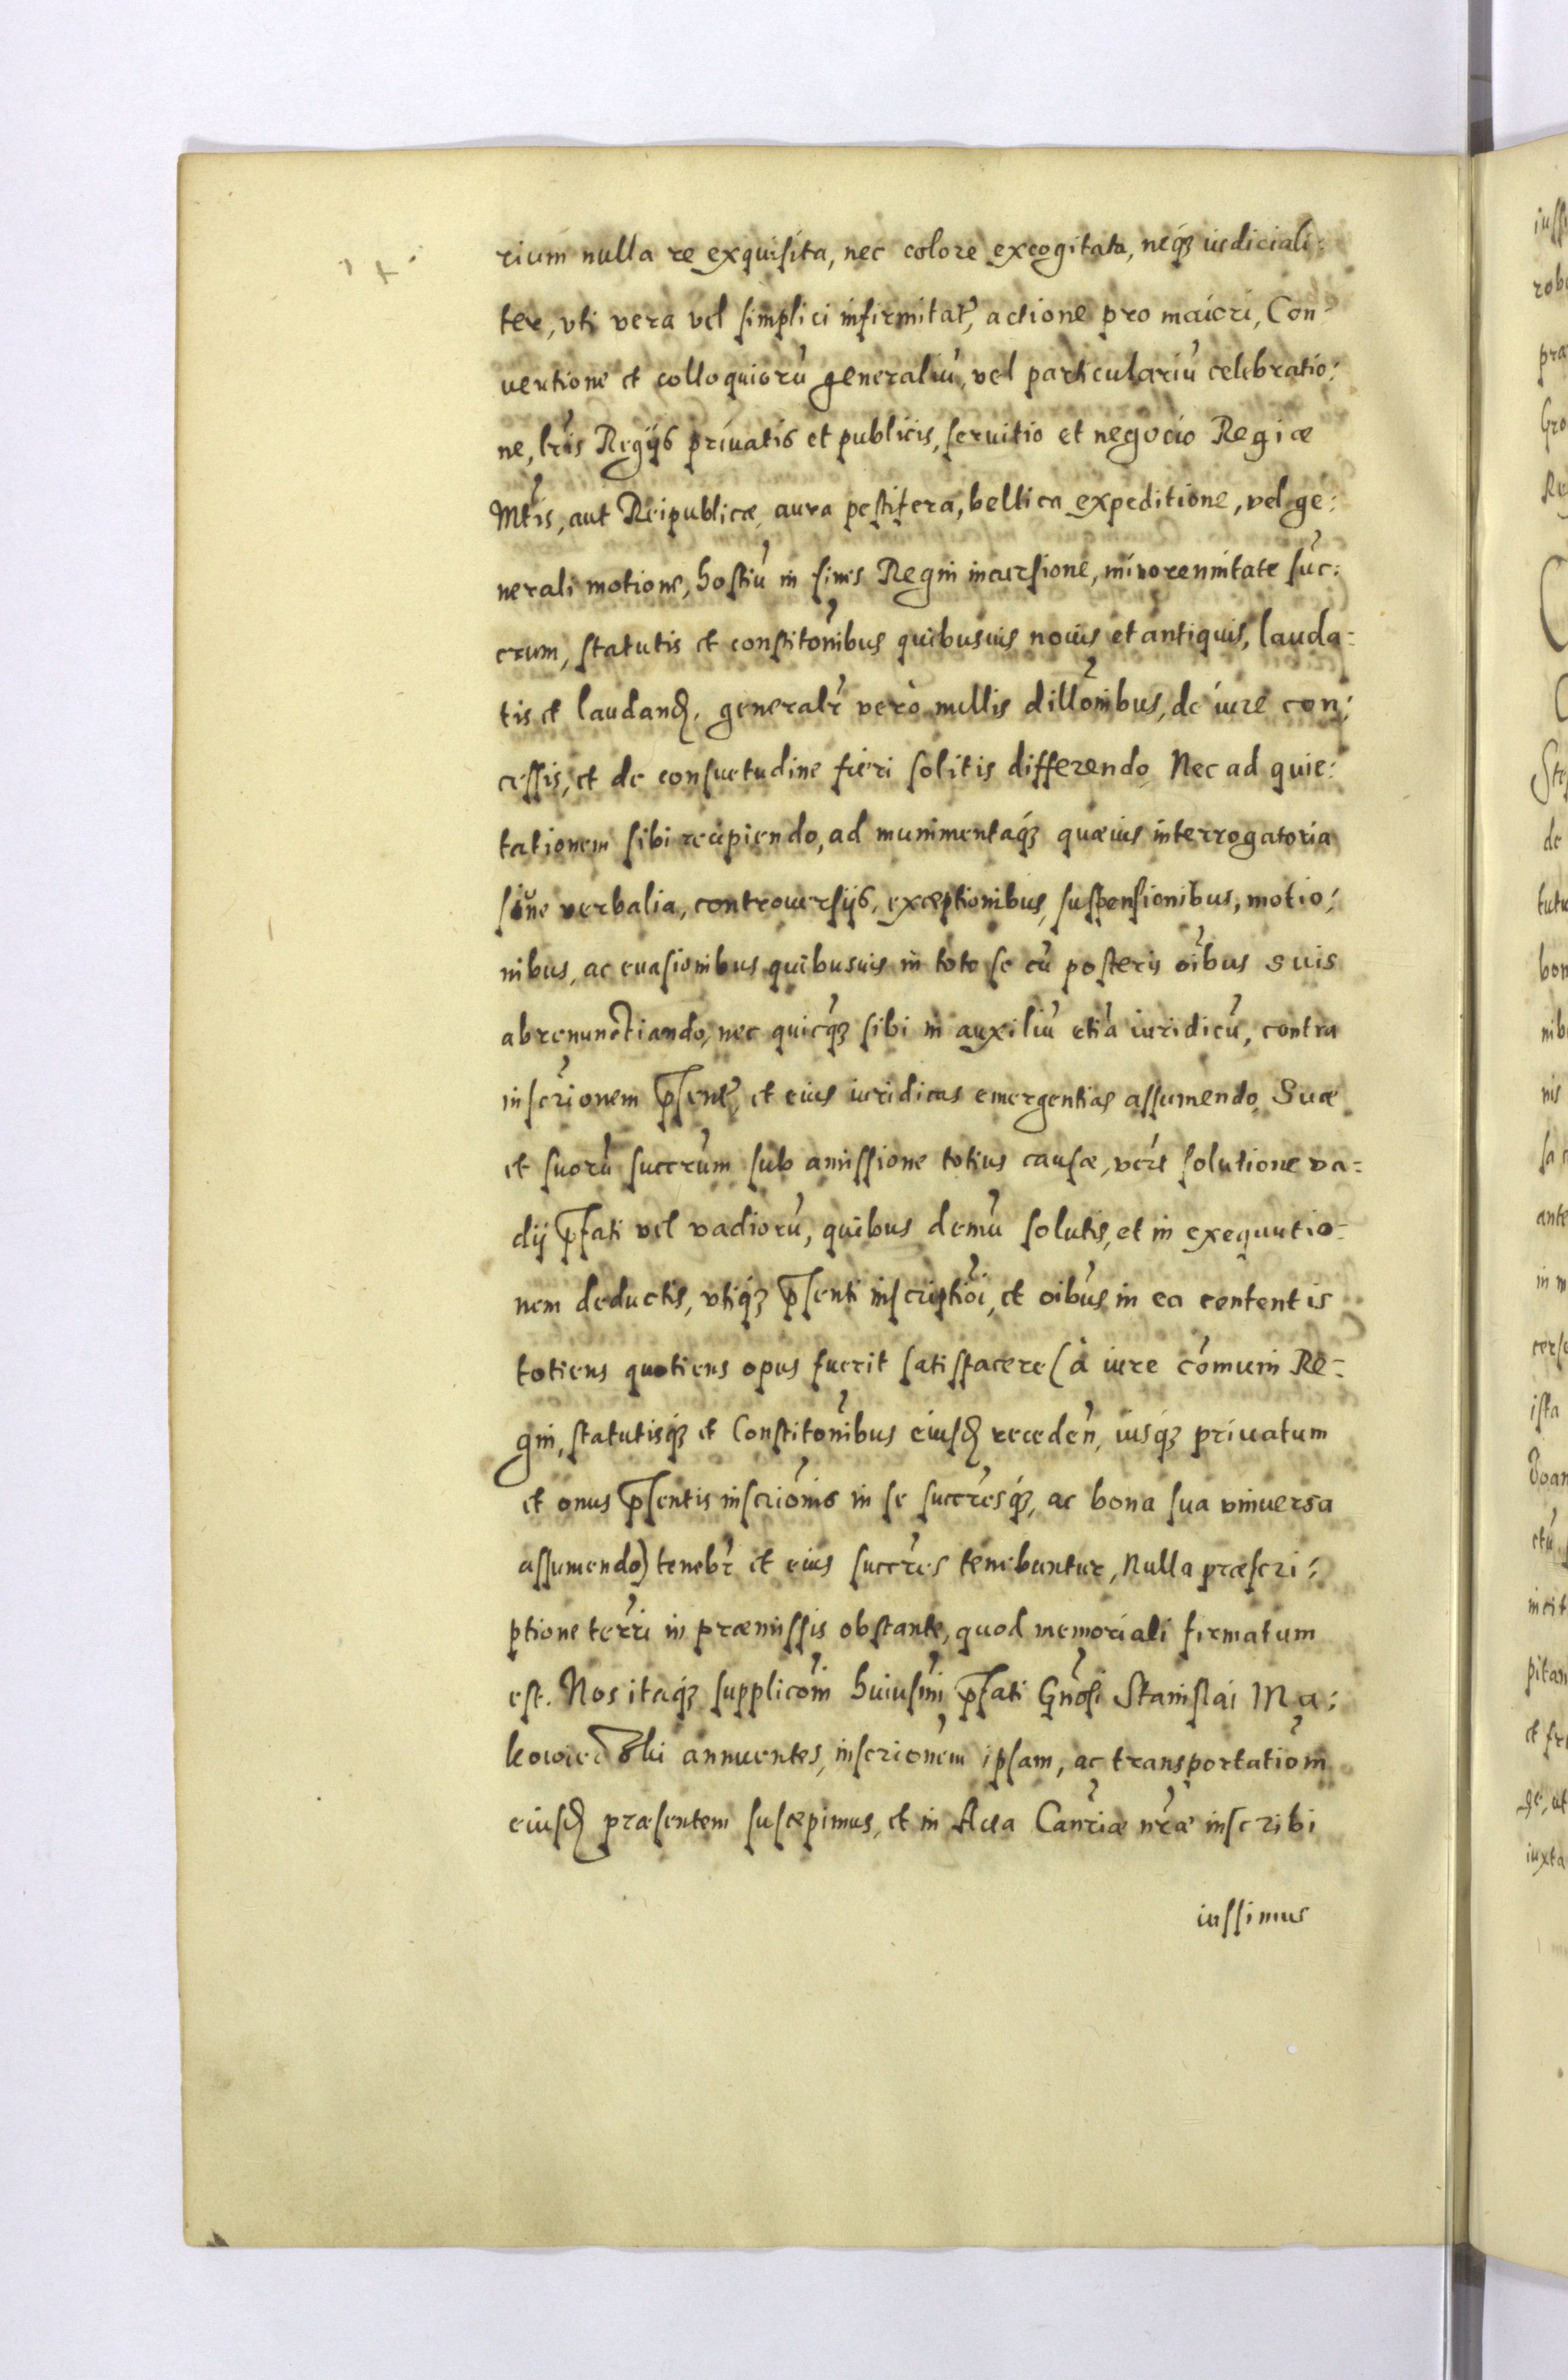 rium nulla re exquisita, nec colore excogitata, neqꝫ iudiciali:
ter, vti vera vel simplici infirmitat̃, actione pro maiori, Con=
uentione et colloquiorũ generaliũ, vel particulariũ celebratio:
ne, lr̃is Regijs priuatis et publicis, seruitio et negocio Regiæ
Mt̃is, aut Reipublicæ, aura pestifera, bellica expeditione, vel ge:
nerali motione, hostiũ in fines Regni incursione, minorennitate suc̃:
crum, statutis et constitõnibus quibusuis nouis et antiquis, lauda=
tis et laudand̃. generalr̃ verò nullis dillõnibus, de iure con:
cessis, et de consuetudine fieri solitis differendo. Nec ad quie:
tationem sibi recipiendo, ad munimentaqꝫ quæuis interrogatoria
siue verbalia, controuersijs, exceptionibus, suspensionibus, motio:
nibus, ac euasionibus quibusuis in toto se cũ posteris oĩbus suis
abrenunctiando, nec quicqꝫ sibi in auxiliũ etiã iuridicũ, contra
inscr̃ionem p̃sent̃, et eius iuridicas emergentias assumendo. Suæ
et suorũ succr̃um sub amissione totius causæ, veri solutione va=
dij p̃fati vel vadiorũ, quibus demũ solutis, et in exequutio=
nem deductis, vtiqꝫ p̃senti inscriptiõi, et oĩbus in ea contentis
totiens quotiens opus fuerit satisfacere (à iure cõmuni Re=
gni, statutisqꝫ et Constitõnibus eiusd̃ receden̂, iusqꝫ priuatum
et onus p̃sentis inscriõnis in se succr̃esqꝫ, ac bona sua vniuersa
assumendo) tenebr̃ et eius succr̃es tenebuntur, Nulla præscri:
ptione terr̃i in præmissis obstante, quod memoriali firmatum
est. Nos itaqꝫ supplicõni huiusm̃i p̃fati Gñosi Stanislai Ma:
kowieczki annuentes, inscrionẽm ipsam, ac transportatiõm
eiusd̃ præsentem suscepimus, et in Acta Canr̃iæ nr̃æ inscribi
iussimus